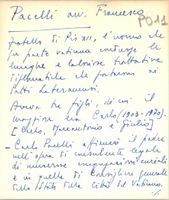 Pacelli avv. Francesco
PO11
fratello di Pio XII, l'uomo che
in parte vaticana condusse le
lunghe e laboriose trattative
diplomatiche che portarono ai
Patti Lateranensi.
Aveva tre figli, di cui il
maggiore era Carlo (1903-1970).
[Carlo, Marcantonio e Giulio]
- Carlo Pacelli affiancò il padre
nell'opera di consulente legale
di numerose congregazioni
e in quella di Consigliere generale
dello Stato della Città del Vaticano.